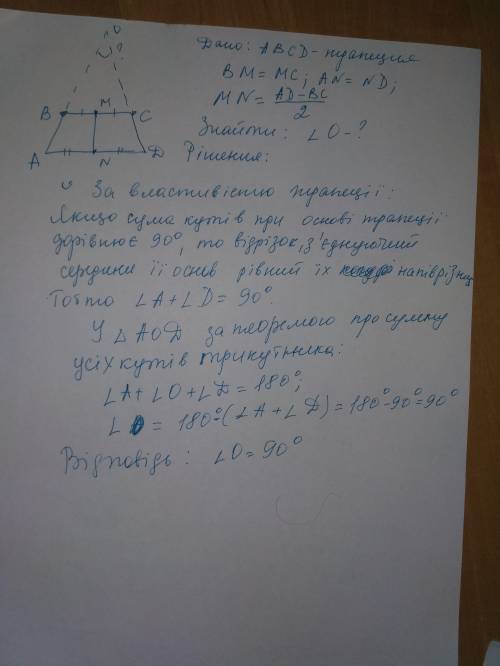 O
?
B M C
A N D
Дано: ABCD - трапеция
BM = MC; AN = ND;
MN = AD-BC / 2
Знайти: ∠O - ?
Рішення:
За властивістю трапеції:
Якщо сума кутів при основі трапеції
дорівнює 90°, то відрізок, з'єднуючий
середини її основ рівний їх напіврізниці
Тобто ∠A + ∠D = 90°.
У △AOD за теоремою про сумму
усіх кутів трикутника:
∠A + ∠O + ∠D = 180°;
∠O = 180° - (∠A + ∠D) = 180° - 90° = 90°
Відповідь: ∠O = 90°